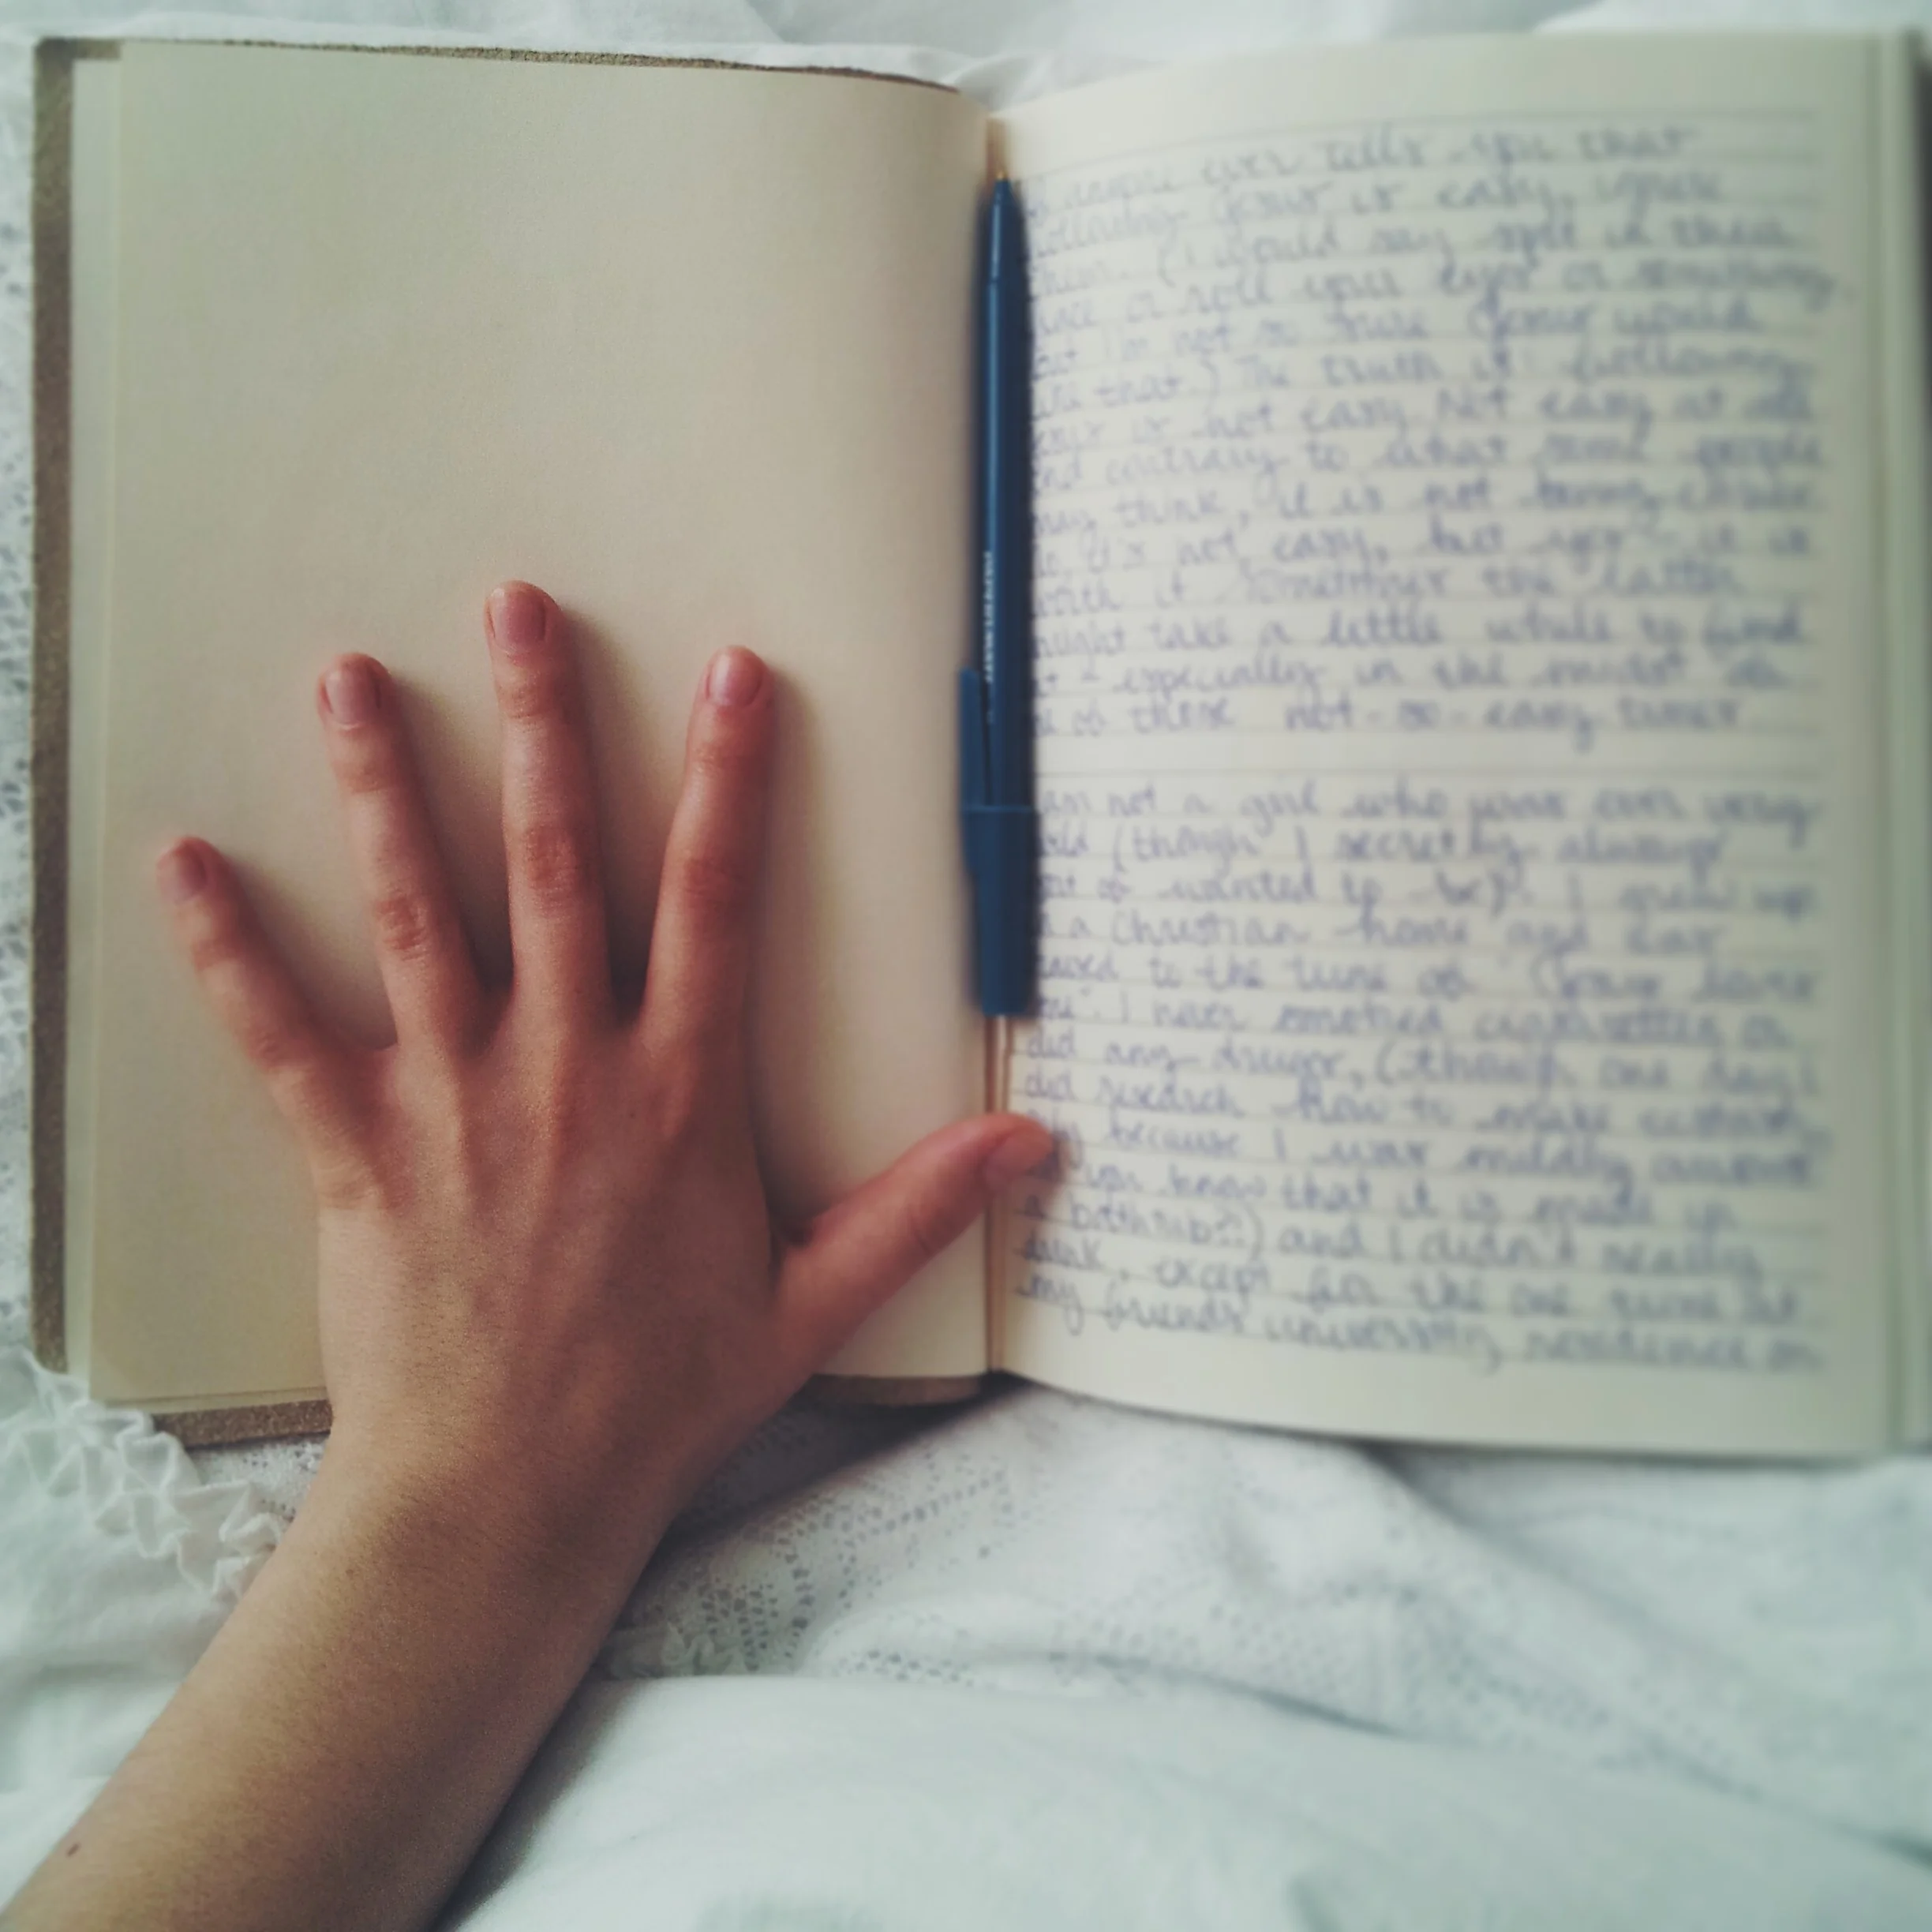 someone ever tells you that
following Jesus is easy, ignore
them. (I would say spit in their
face or roll your eyes or something
but I'm not so sure Jesus would
like that.) The truth is: following
Jesus is not easy. Not easy at all
and contrary to what some people
may think, it is not
So it's not easy, but yes - it is
worth it. Sometimes the latter
might take a little while to find
it - especially in the midst of
of those not-so-easy times
am not a girl who was ever very
(though I secretly always
sort of wanted to be). I grew up
in a Christian home and
to the tune of "Jesus loves
me". I never smoked cigarettes or
did any drugs, (though one day I
did research how to make
because I was mildly
you know that it is made in
a bathtub?!) and I didn't really
drink, except for the one time at
my friend's university residence on